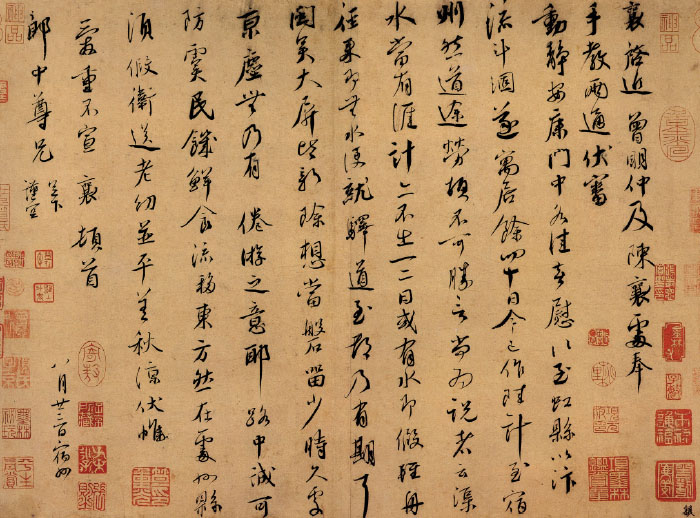 襄啓近曾明仲及陳襄處奉
手教兩通伏審
動靜安康門中各佳喜慰〻至虹縣以汴
流斗涸遂寓居餘四十日今已作陸計至宿
州然道途勞頓不可勝言尚為說者云渠
水當有涯計亦不出一二日或有水即假輕舟
徑來即無水便就驛道至都乃有期耳
聞美大屏皆新除想當磐留少時久處
京塵無乃有倦遊之意耶路中誠可
防虞民饑鮮食流移東方然在處州縣
須假衛送老幼並平善秋涼伏惟
愛重不宣襄頓首
郎中尊兄
足下
謹空
八月廿三日宿州